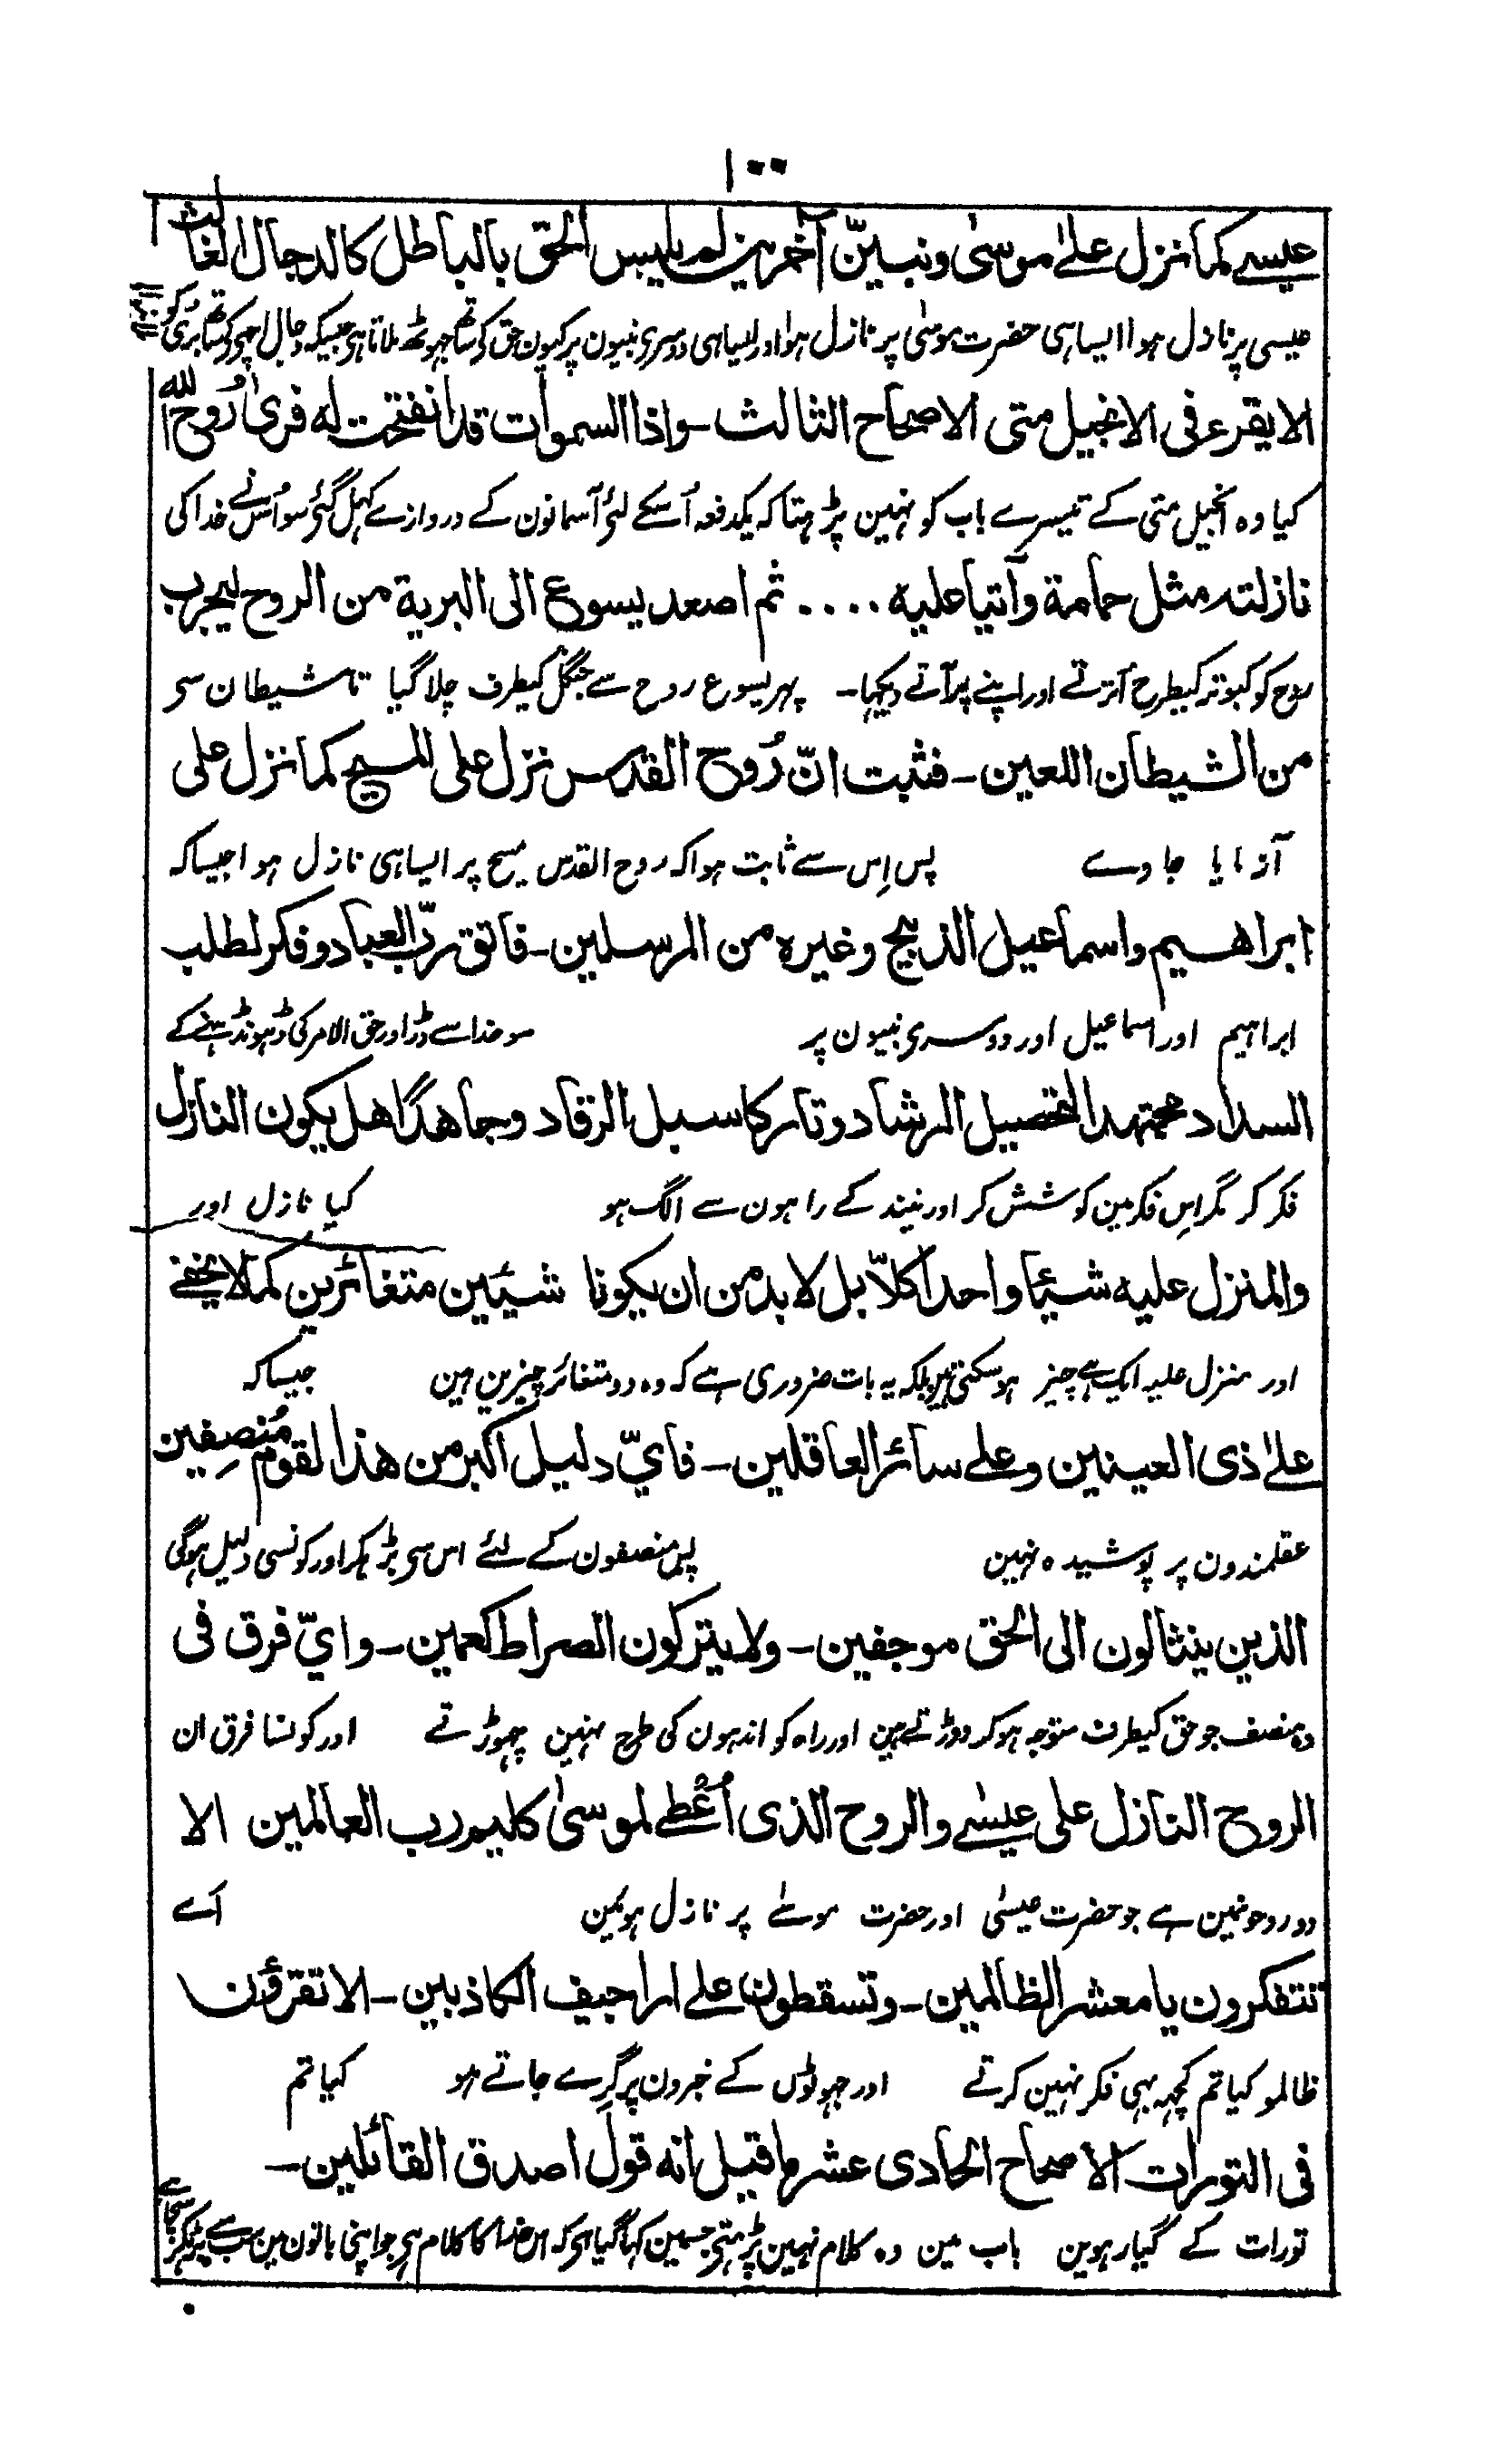 ۱۰۰
عیسے کما نزل علیٰ موسیٰ ونبیّین آخرین لم یلبس الحق بالباطل کالدجال الغالث
عیسی پر نازل ہوا ایسا ہی حضرت موسیٰ پر نازل ہوا اور ایسا ہی دوسری نبیون پر کیون حق کو ساتھ جھوٹھ ملاتا ہی جیسیکہ دجال اچھی کو ساتھ بری کو
الا یقرء فی الانجیل متی الاصحاح الثالث ـ واذا السموات قد انفتحت له فرئ رُوح الله
کیا وہ انجیل متی کے تیسرے باب کو نہین پڑہتا کہ یکدفعہ اُسکے لئی آسمانون کے دروازے کہل گئی سو اُس نے خدا کی
نازلته مثل حمامة وآتیا علیه .... ثم اصعد یسوع الی البریة من الروح لیجرب
روح کو کبوتر کیطرح اُترتے اور اپنے پر آتے دیکہا۔ پہر یسوع روح سے جنگل کیطرف چلا گیا تا شیطان سی
من الشیطان اللعین ـ فثبت انّ رُوح القدس نزل علی المسیح کما نزل علی
آزمایا جاوے پس اِس سے ثابت ہوا کہ روح القدس مسیح پر ایسا ہی نازل ہوا جیسا کہ
ابراهیم واسماعیل الذبیح وغیره من المرسلین ـ فاتق ربّ العباد وفکر لطلب
ابراہیم اور اسماعیل اور دوسری نبیون پر سو خدا سے ڈر اور حق الامر کی ڈہونڈہنے کے
السداد مجتهدا لتحصیل الرشاد وتارکا سبل الرقاد وجاهدًا هل یکون النازل
فکر کر مگر اِس فکر مین کوشش کر اور نیند کے راہون سے الگ ہو کیا نازل اور
والمنزل علیه شیئا واحدا کلاّ بل لا بد من ان یکونا شیئین متغائرین کما لا یخفے
اور منزل علیہ ایک ہے چیز ہو سکتی ہین بلکہ یہ بات ضروری ہے کہ وہ دو متغائر چیزین ہین جیسا کہ
علیٰ ذی العینین وعلے سائر العاقلین ـ فايّ دلیل اکبر من هذا لقوم مُنصِفین
عقلمندون پر پوشیدہ نہین پس منصفون کے لئے اس سی بڑہکر اور کونسی دلیل ہوگی
الذین ینثالون الی الحق موجفین ـ ولا یترکون الصراط کعمین ـ وايّ فرق فی
وہ منصف جو حق کیطرف متوجہ ہو کر دوڑتے ہین اور راہ کو اندہون کی طرح نہین چہوڑتے اور کونسا فرق ان
الروح النازل علی عیسٰے والروح الذی اُعْطے لموسیٰ کلیم رب العالمین الا
دو روحونمین ہے جو حضرت عیسٰی اور حضرت موسٰے پر نازل ہوئین اَے
تتفکرون یا معشر الظالمین ـ وتسقطون علے اراجیف الکاذبین ـ الا تقرؤن
ظالمو کیا تم کچہہ بہی فکر نہین کرتے اور جہوٹوں کے خبرون پر گرے جاتے ہو کیا تم
فی التورات الاصحاح الحادی عشر ما قیل انه قول اصدق القائلین ـ
تورات کے گیارہوین باب مین وہ کلام نہین پڑہتی جسمین کہا گیا ہی کہ اس خدا کا کلام ہی جو اپنی باتون مین سب سے بڑہکر سچا ہے